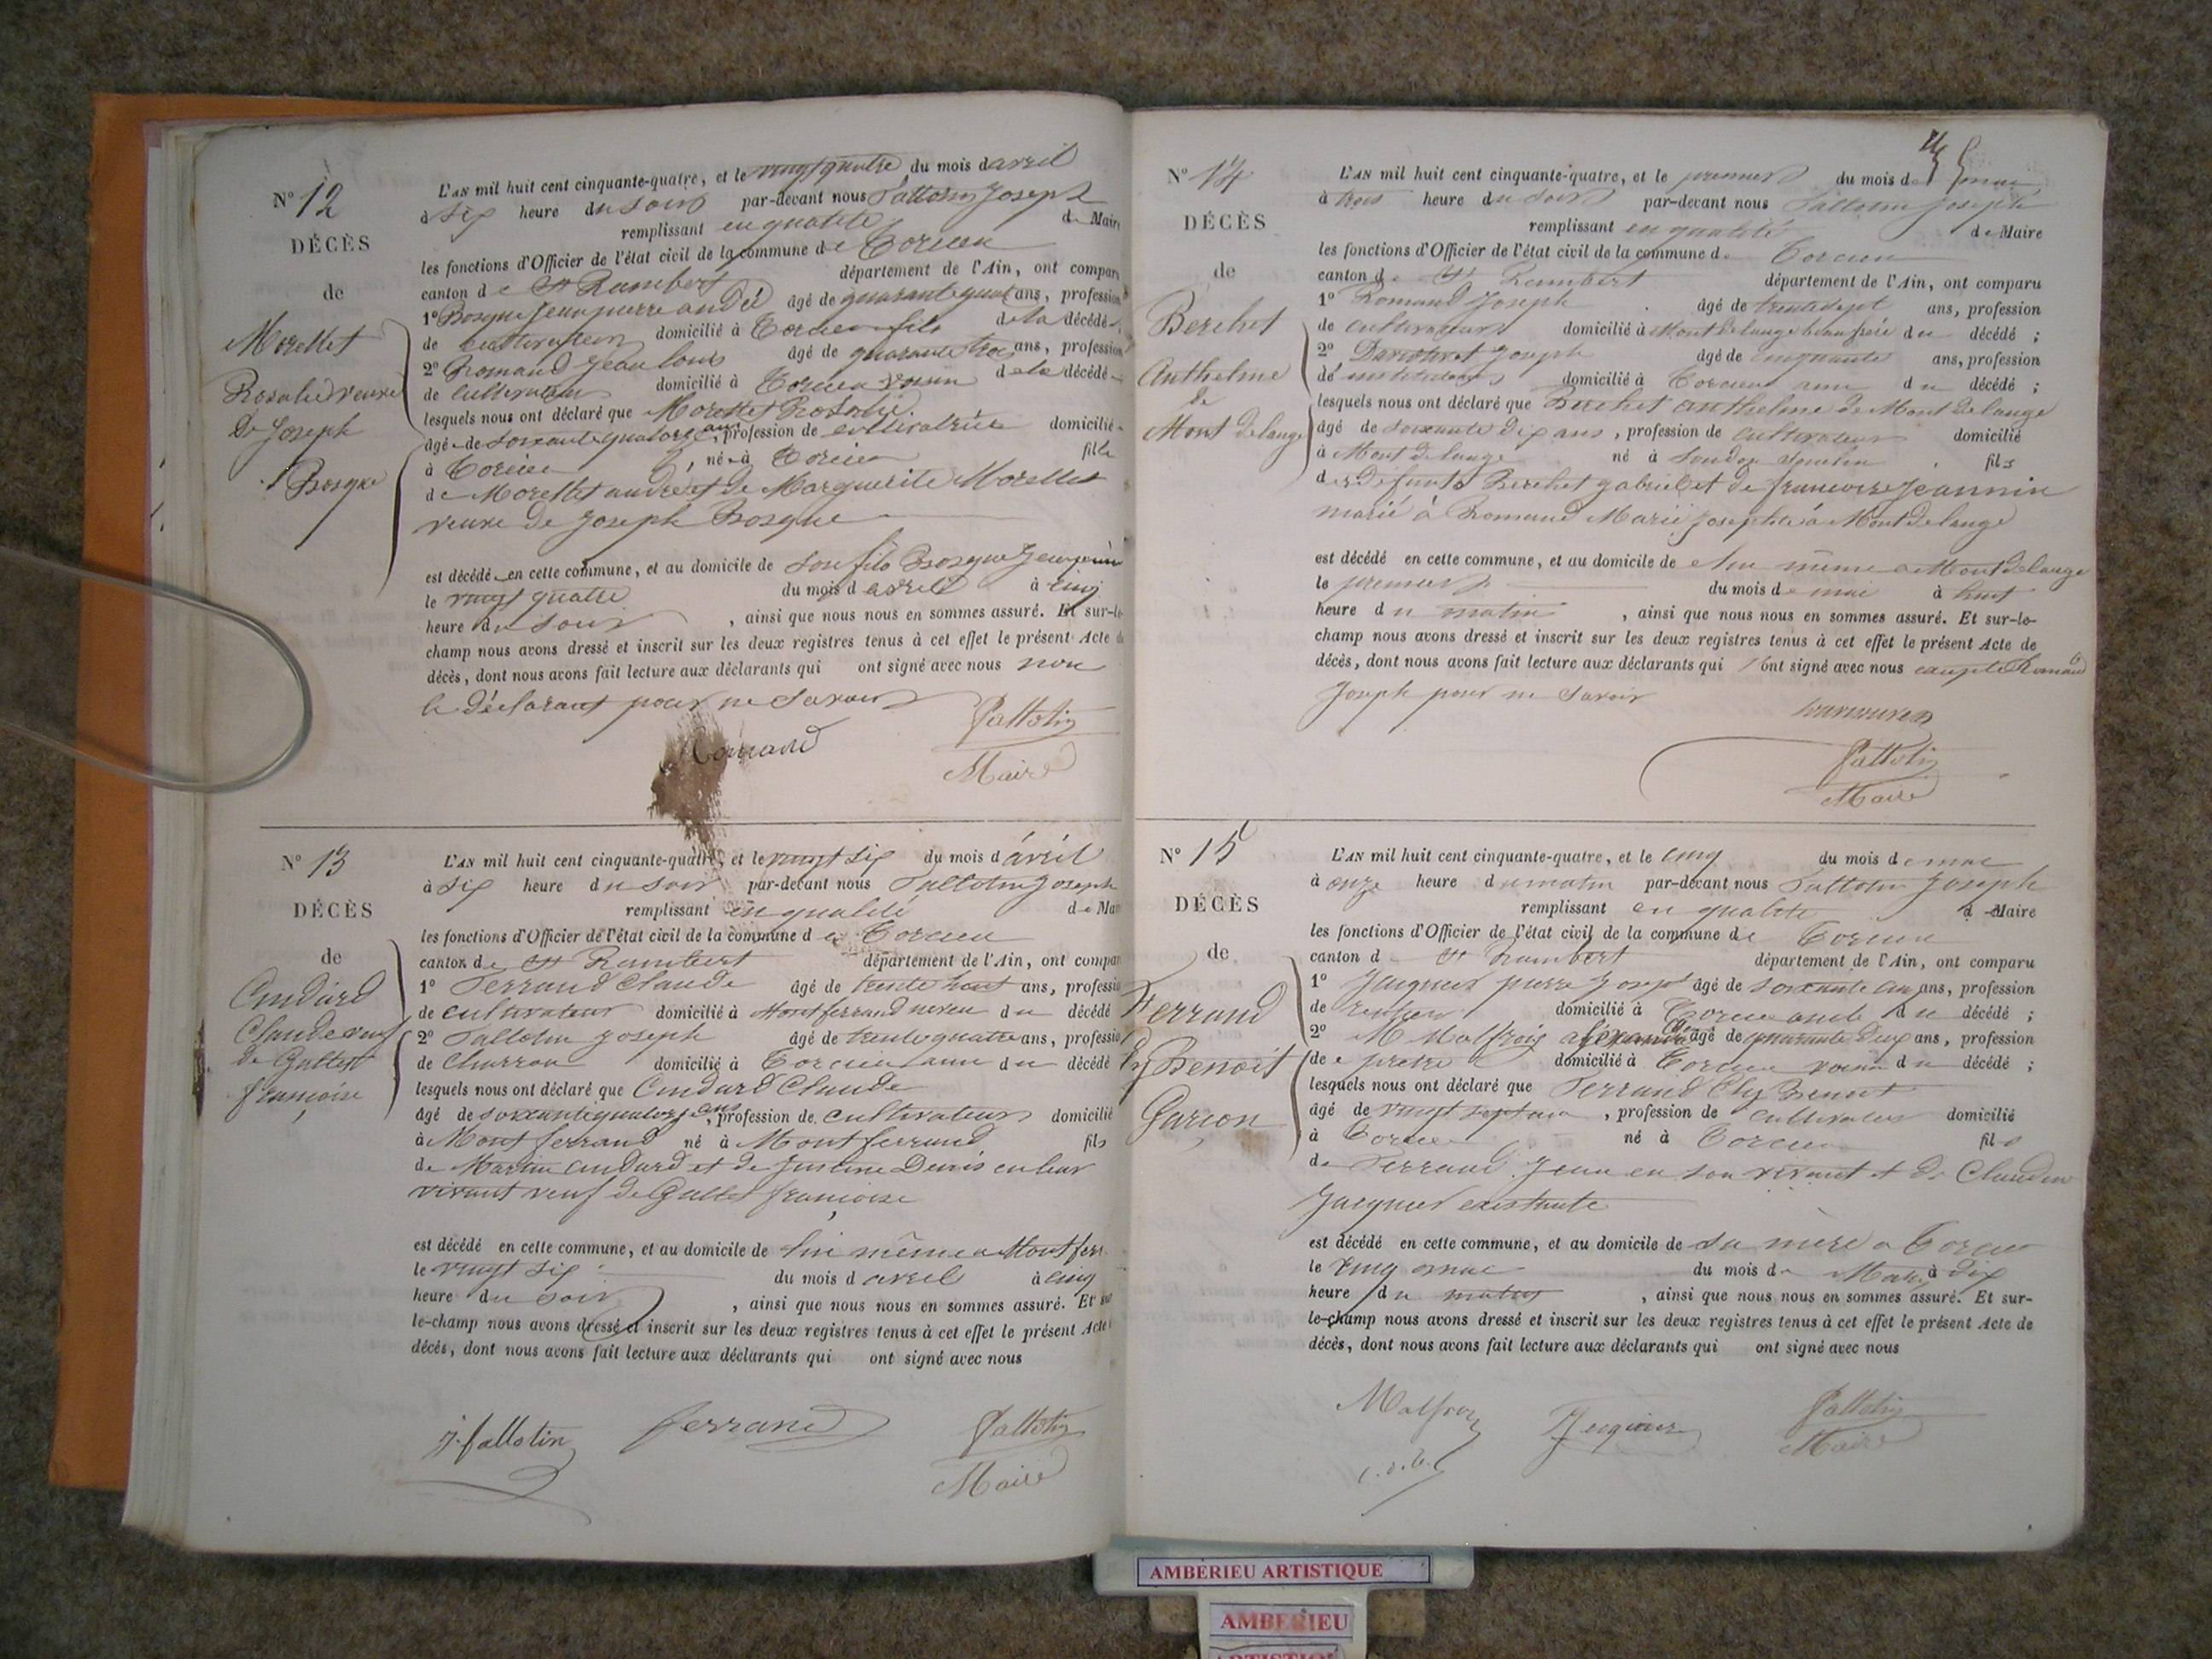 N° 12
DÉCÈS
de
Morellet
Rosalie veuve
De Joseph
Bosque
L'AN mil huit cent cinquante-quatre, et le vingt quatre du mois d avril
à six heure du soir par-devant nous Pallotin Joseph
remplissant en qualité de Maire
les fonctions d'Officier de l'état civil de la commune de Torcieu
canton de St Rambert département de l'Ain, ont comparu
1° Bosque Jean pierre andré âgé de quarante quat ans, profession
de cultivateur domicilié à Torcieu fils de la décédé
2° Romand Jean louis âgé de quarante trois ans, profession
de cultivateur domicilié à Torcieu voisin de la décédé
lesquels nous ont déclaré que Morellet Rosalie
âgé de soixante quatorze ans, profession de cultivatrice domicilié
à Torcieu, né à Torcieu fille
de Morellet andré et de Marguerite Morellet
veuve de Joseph Bosque
est décédé en cette commune, et au domicile de son fils Bosque Jean pierre
le vingt quatre du mois d avril à cinq
heure du soir, ainsi que nous nous en sommes assuré. Et sur-le-
champ nous avons dressé et inscrit sur les deux registres tenus à cet effet le présent Acte de
décès, dont nous avons fait lecture aux déclarants qui ont signé avec nous non
le déclarant pour ne savoir
Romand
Pallotin
Maire
N° 13
DÉCÈS
de
Cudard
Claude veuf
de Gallet
françoise
L'AN mil huit cent cinquante-quatre, et le vingt six du mois d avril
à six heure du soir par-devant nous Pallotin Joseph
remplissant en qualité de Mai
les fonctions d'Officier de l'état civil de la commune de Torcieu
canton de St Rambert département de l'Ain, ont compar
1° Ferrand Claude âgé de trente huit ans, professio
de cultivateur domicilié à Montferrand neveu du décédé
2° Pallotin Joseph âgé de trente quatre ans, professio
de Charron domicilié à Torcieu ami du décédé
lesquels nous ont déclaré que Cudard Claude
âgé de soixante quatorze ans, profession de cultivateur domicilié
à Montferrand né à Montferrand fils
de Martin Cudard et de Denis en leur
vivant veuf de Gallet françoise
est décédé en cette commune, et au domicile de lui même a Montferr
le vingt six du mois d avril à cinq
heure du soir, ainsi que nous nous en sommes assuré. Et sur
le-champ nous avons dressé et inscrit sur les deux registres tenus à cet effet le présent Acte
décès, dont nous avons fait lecture aux déclarants qui ont signé avec nous
J. pallotin
ferrand
Pallotin
Maire
N° 14
DÉCÈS
de
Berchet
Anthelme
de
Mont delange
L'AN mil huit cent cinquante-quatre, et le premier du mois de mai
à trois heure du soir par-devant nous Pallotin Joseph
remplissant en qualité de Maire
les fonctions d'Officier de l'état civil de la commune de Torcieu
canton de St Rambert département de l'Ain, ont comparu
1° Romand Joseph âgé de trente sept ans, profession
de cultivateur domicilié à Mont delange beau frère du décédé ;
2° Joseph âgé de cinquante ans, profession
de instituteur domicilié à Torcieu ami du décédé ;
lesquels nous ont déclaré que Berchet anthelme de Mont delange
âgé de soixante dix ans, profession de cultivateur domicilié
à Mont delange né à fils
des défunts Berchet gabriel et de françoise Jeannin
marié à Romand Marie Josephte à Mont delange
est décédé en cette commune, et au domicile de lui même a Mont delange
le premier du mois de mai à huit
heure du matin, ainsi que nous nous en sommes assuré. Et sur-le-
champ nous avons dressé et inscrit sur les deux registres tenus à cet effet le présent Acte de
décès, dont nous avons fait lecture aux déclarants qui ont signé avec nous excepté Romand
Joseph pour ne savoir
Pallotin
Maire
N° 15
DÉCÈS
de
Ferrand
Cly Benoit
Garçon
L'AN mil huit cent cinquante-quatre, et le cinq du mois de mai
à onze heure du matin par-devant nous Pallotin Joseph
remplissant en qualité d Maire
les fonctions d'Officier de l'état civil de la commune de Torcieu
canton d St Rambert département de l'Ain, ont comparu
1° Jacquier pierre Joseph âgé de soixante cinq ans, profession
de rentier domicilié à Torcieu oncle du décédé ;
2° M Malfroy alexandre âgé de quarante deux ans, profession
de prêtre domicilié à Torcieu voisin du décédé ;
lesquels nous ont déclaré que Ferrand Cly Benoit
âgé de vingt sept ans, profession de cultivateur domicilié
à Torcieu né à Torcieu fils
de Ferrand Jean en son vivant et de Claudine
Jacquier existante
est décédé en cette commune, et au domicile de sa mère a Torcieu
le cinq mai du mois de Mai à dix
heure du matin, ainsi que nous nous en sommes assuré. Et sur-
le-champ nous avons dressé et inscrit sur les deux registres tenus à cet effet le présent Acte de
décès, dont nous avons fait lecture aux déclarants qui ont signé avec nous
Malfroy
Jacquier
Pallotin
Maire
AMBÉRIEU ARTISTIQUE
AMBERIEU
ARTISTIQUE